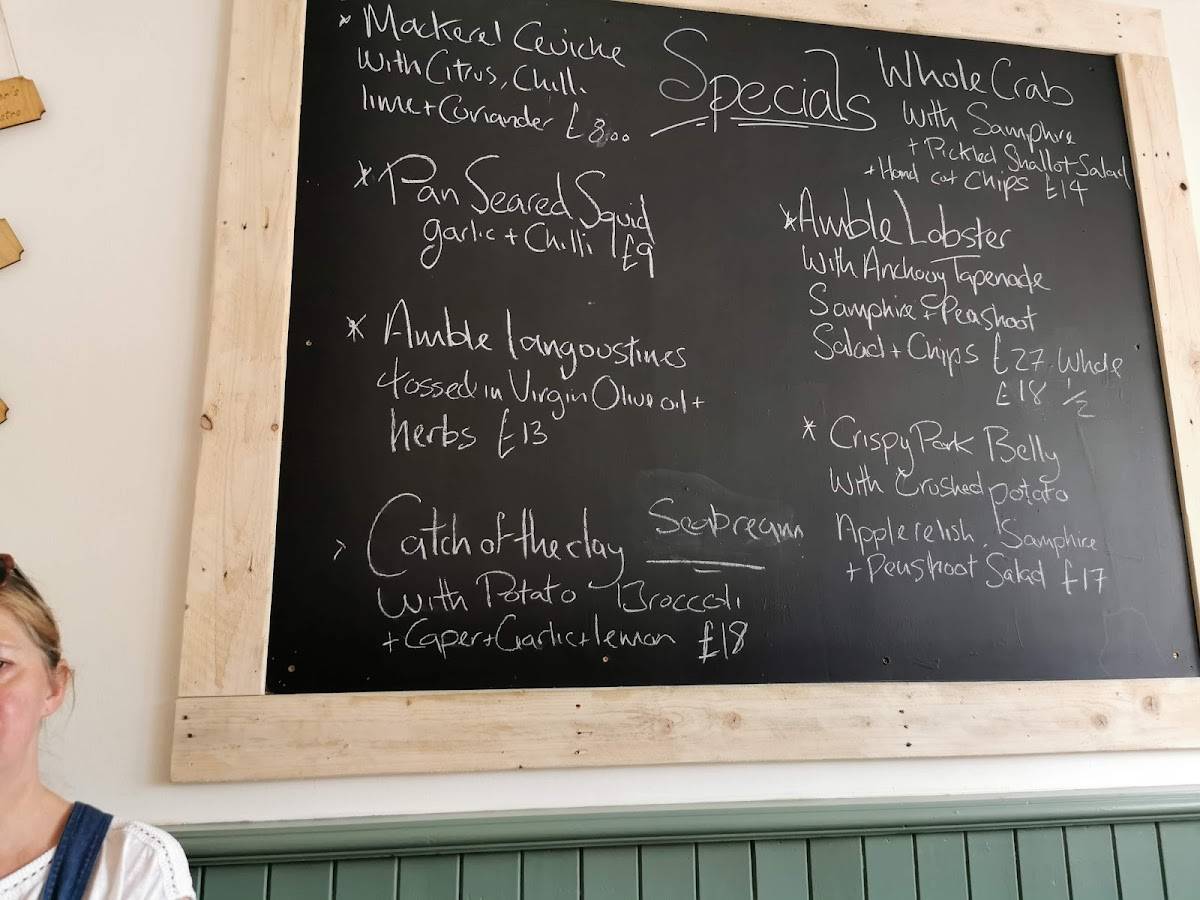 Specials
* Mackerel Ceviche
with Citrus, Chilli
lime + Coriander £8.00
* Pan Seared Squid
garlic + Chilli £9
* Amble langoustines
tossed in Virgin Olive oil +
herbs £13
> Catch of the day Seabream
with Potato Broccoli
+ Caper + Garlic + lemon £18
Whole Crab
with Samphire
+ Pickled Shallot Salad
+ Hand cut chips £14
* Amble Lobster
with Anchovy Tapenade
Samphire + Peashoot
Salad + Chips £27 Whole
£18 1/2
* Crispy Pork Belly
with Crushed potato
Apple relish, Samphire
+ Peashoot Salad £17